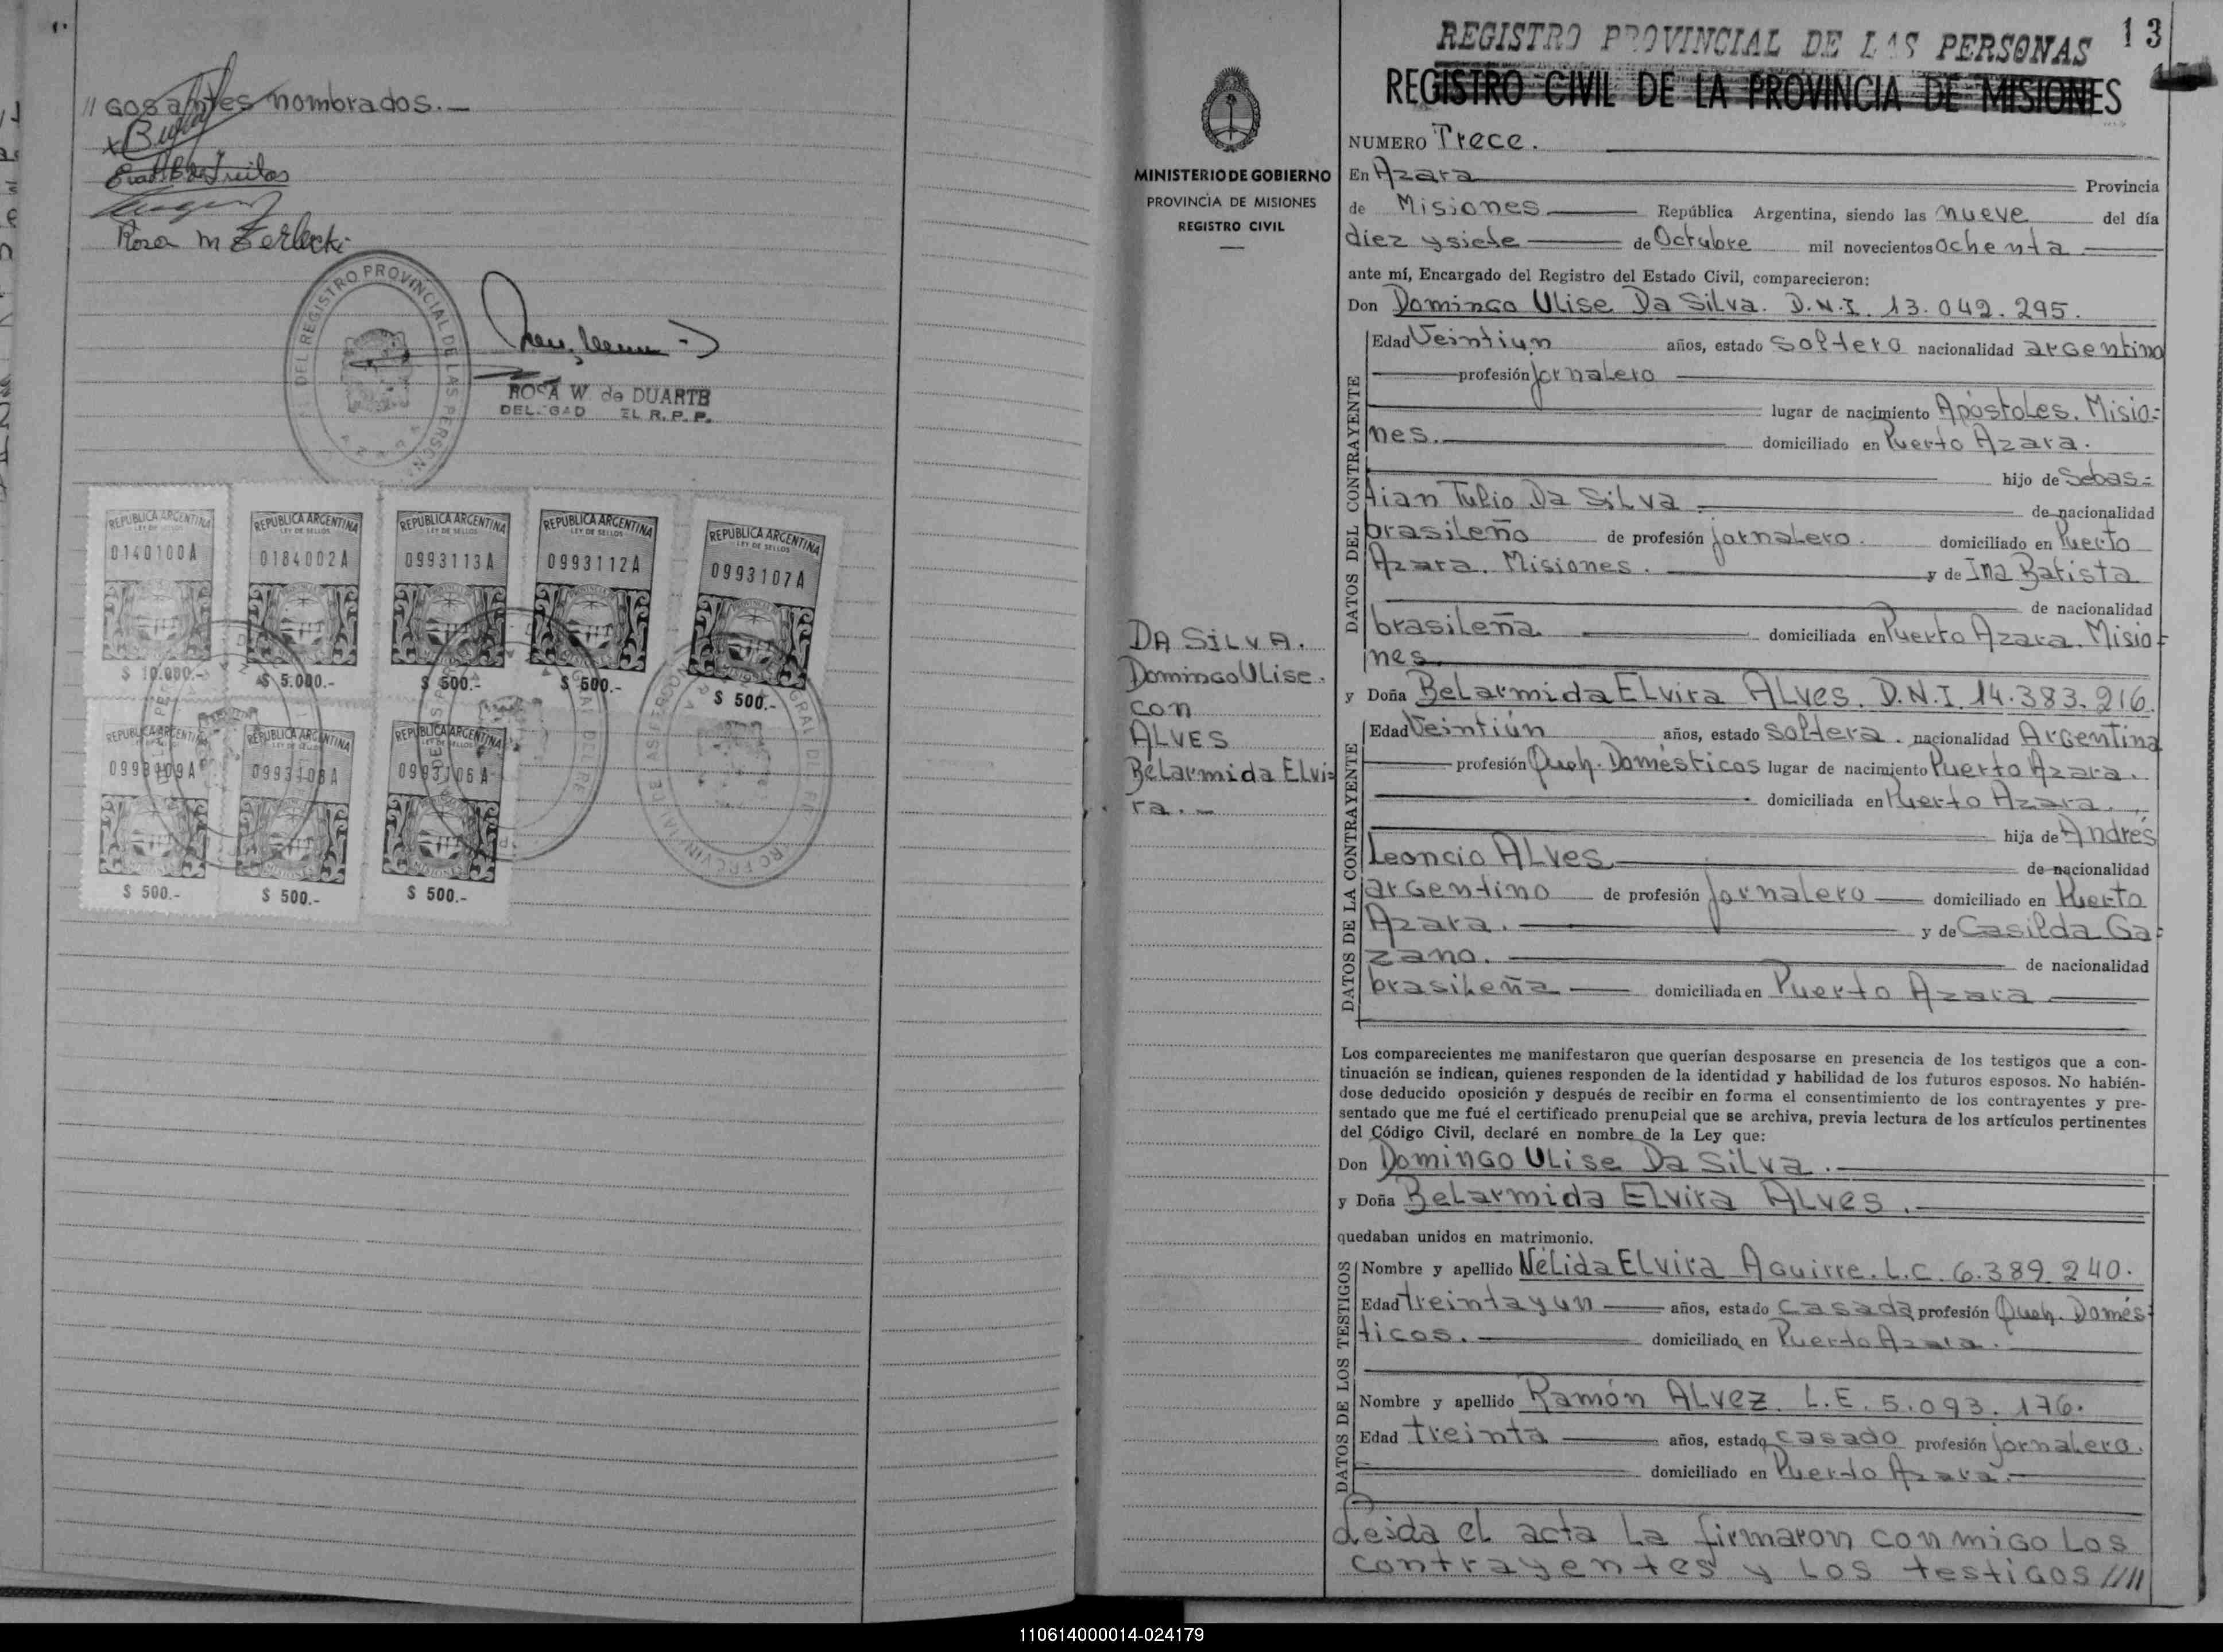 // gos antes nombrados.—
Rosa M Zerlecki
DEL REGISTRO PROVINCIAL DE LAS PERSONAS
ROSA W. de DUARTE
DELEGAD EL R.P.P.
REPUBLICA ARGENTINA
LEY DE SELLOS
0140100A
$ 10.000.-
REPUBLICA ARGENTINA
LEY DE SELLOS
0184002A
$ 5.000.-
REPUBLICA ARGENTINA
LEY DE SELLOS
0993113A
$ 500.-
REPUBLICA ARGENTINA
LEY DE SELLOS
0993112A
$ 500.-
REPUBLICA ARGENTINA
LEY DE SELLOS
0993107A
$ 500.-
REPUBLICA ARGENTINA
0993109A
$ 500.-
REPUBLICA ARGENTINA
0993108A
$ 500.-
REPUBLICA ARGENTINA
LEY DE SELLOS
0993106A
$ 500.-
MINISTERIO DE GOBIERNO
PROVINCIA DE MISIONES
REGISTRO CIVIL
DA SILVA.
Domingo Ulise.
con
ALVES
Belarmida Elvi=
ra.—
REGISTRO PROVINCIAL DE LAS PERSONAS 13
REGISTRO CIVIL DE LA PROVINCIA DE MISIONES
NUMERO Trece.
En Azara Provincia
de Misiones República Argentina, siendo las nueve del día
diez y siete de Octubre mil novecientos ochenta
ante mí, Encargado del Registro del Estado Civil, comparecieron:
Don Domingo Ulise Da Silva. D.N.I. 13.042.295.
DATOS DEL CONTRAYENTE
Edad Veintiun años, estado soltero nacionalidad argentino
profesión jornalero
lugar de nacimiento Apóstoles. Misio=
nes. domiciliado en Puerto Azara.
hijo de Sebas=
tian Tulio Da Silva. de nacionalidad
brasileño de profesión jornalero. domiciliado en Puerto
Azara. Misiones. y de Ina Batista
de nacionalidad
brasileña domiciliada en Puerto Azara. Misio=
nes.
y Doña Belarmida Elvira Alves. D.N.I 14.383.216.
DATOS DE LA CONTRAYENTE
Edad Veintiún años, estado soltera. nacionalidad Argentina
profesión Queh. Domésticos lugar de nacimiento Puerto Azara.
domiciliada en Puerto Azara.
hija de Andrés
Leoncio Alves. de nacionalidad
argentino de profesión Jornalero domiciliado en Puerto
Azara. y de Casilda Ga=
zano. de nacionalidad
brasileña domiciliada en Puerto Azara
Los comparecientes me manifestaron que querían desposarse en presencia de los testigos que a con-
tinuación se indican, quienes responden de la identidad y habilidad de los futuros esposos. No habién-
dose deducido oposición y después de recibir en forma el consentimiento de los contrayentes y pre-
sentado que me fué el certificado prenupcial que se archiva, previa lectura de los artículos pertinentes
del Código Civil, declaré en nombre de la Ley que:
Don Domingo Ulise Da Silva.
y Doña Belarmida Elvira Alves.
quedaban unidos en matrimonio.
DATOS DE LOS TESTIGOS
Nombre y apellido Nélida Elvira Aguirre. L.C. 6.389.240.
Edad treinta y un años, estado casada profesión Queh. Domés=
ticos. domiciliada en Puerto Azara.
Nombre y apellido Ramón Alvez. L.E. 5.093.176.
Edad treinta años, estado casado profesión jornalero.
domiciliado en Puerto Azara.
Leida el acta la firmaron conmigo los
contrayentes y los testigos ////
110614000014-024179